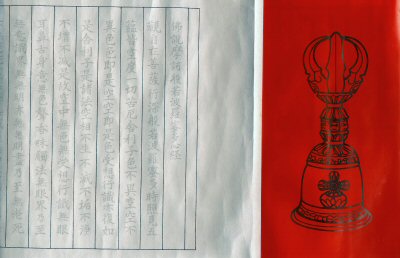 佛說摩訶般若波羅蜜多心經
觀自在菩薩行深般若波羅蜜多時照見五
蘊皆空度一切苦厄舍利子色不異空空不
異色色即是空空即是色受想行識亦復如
是舍利子是諸法空相不生不滅不垢不淨
不增不減是故空中無色無受想行識無眼
耳鼻舌身意無色聲香味觸法無眼界乃至
無意識界無無明亦無無明盡乃至無老死